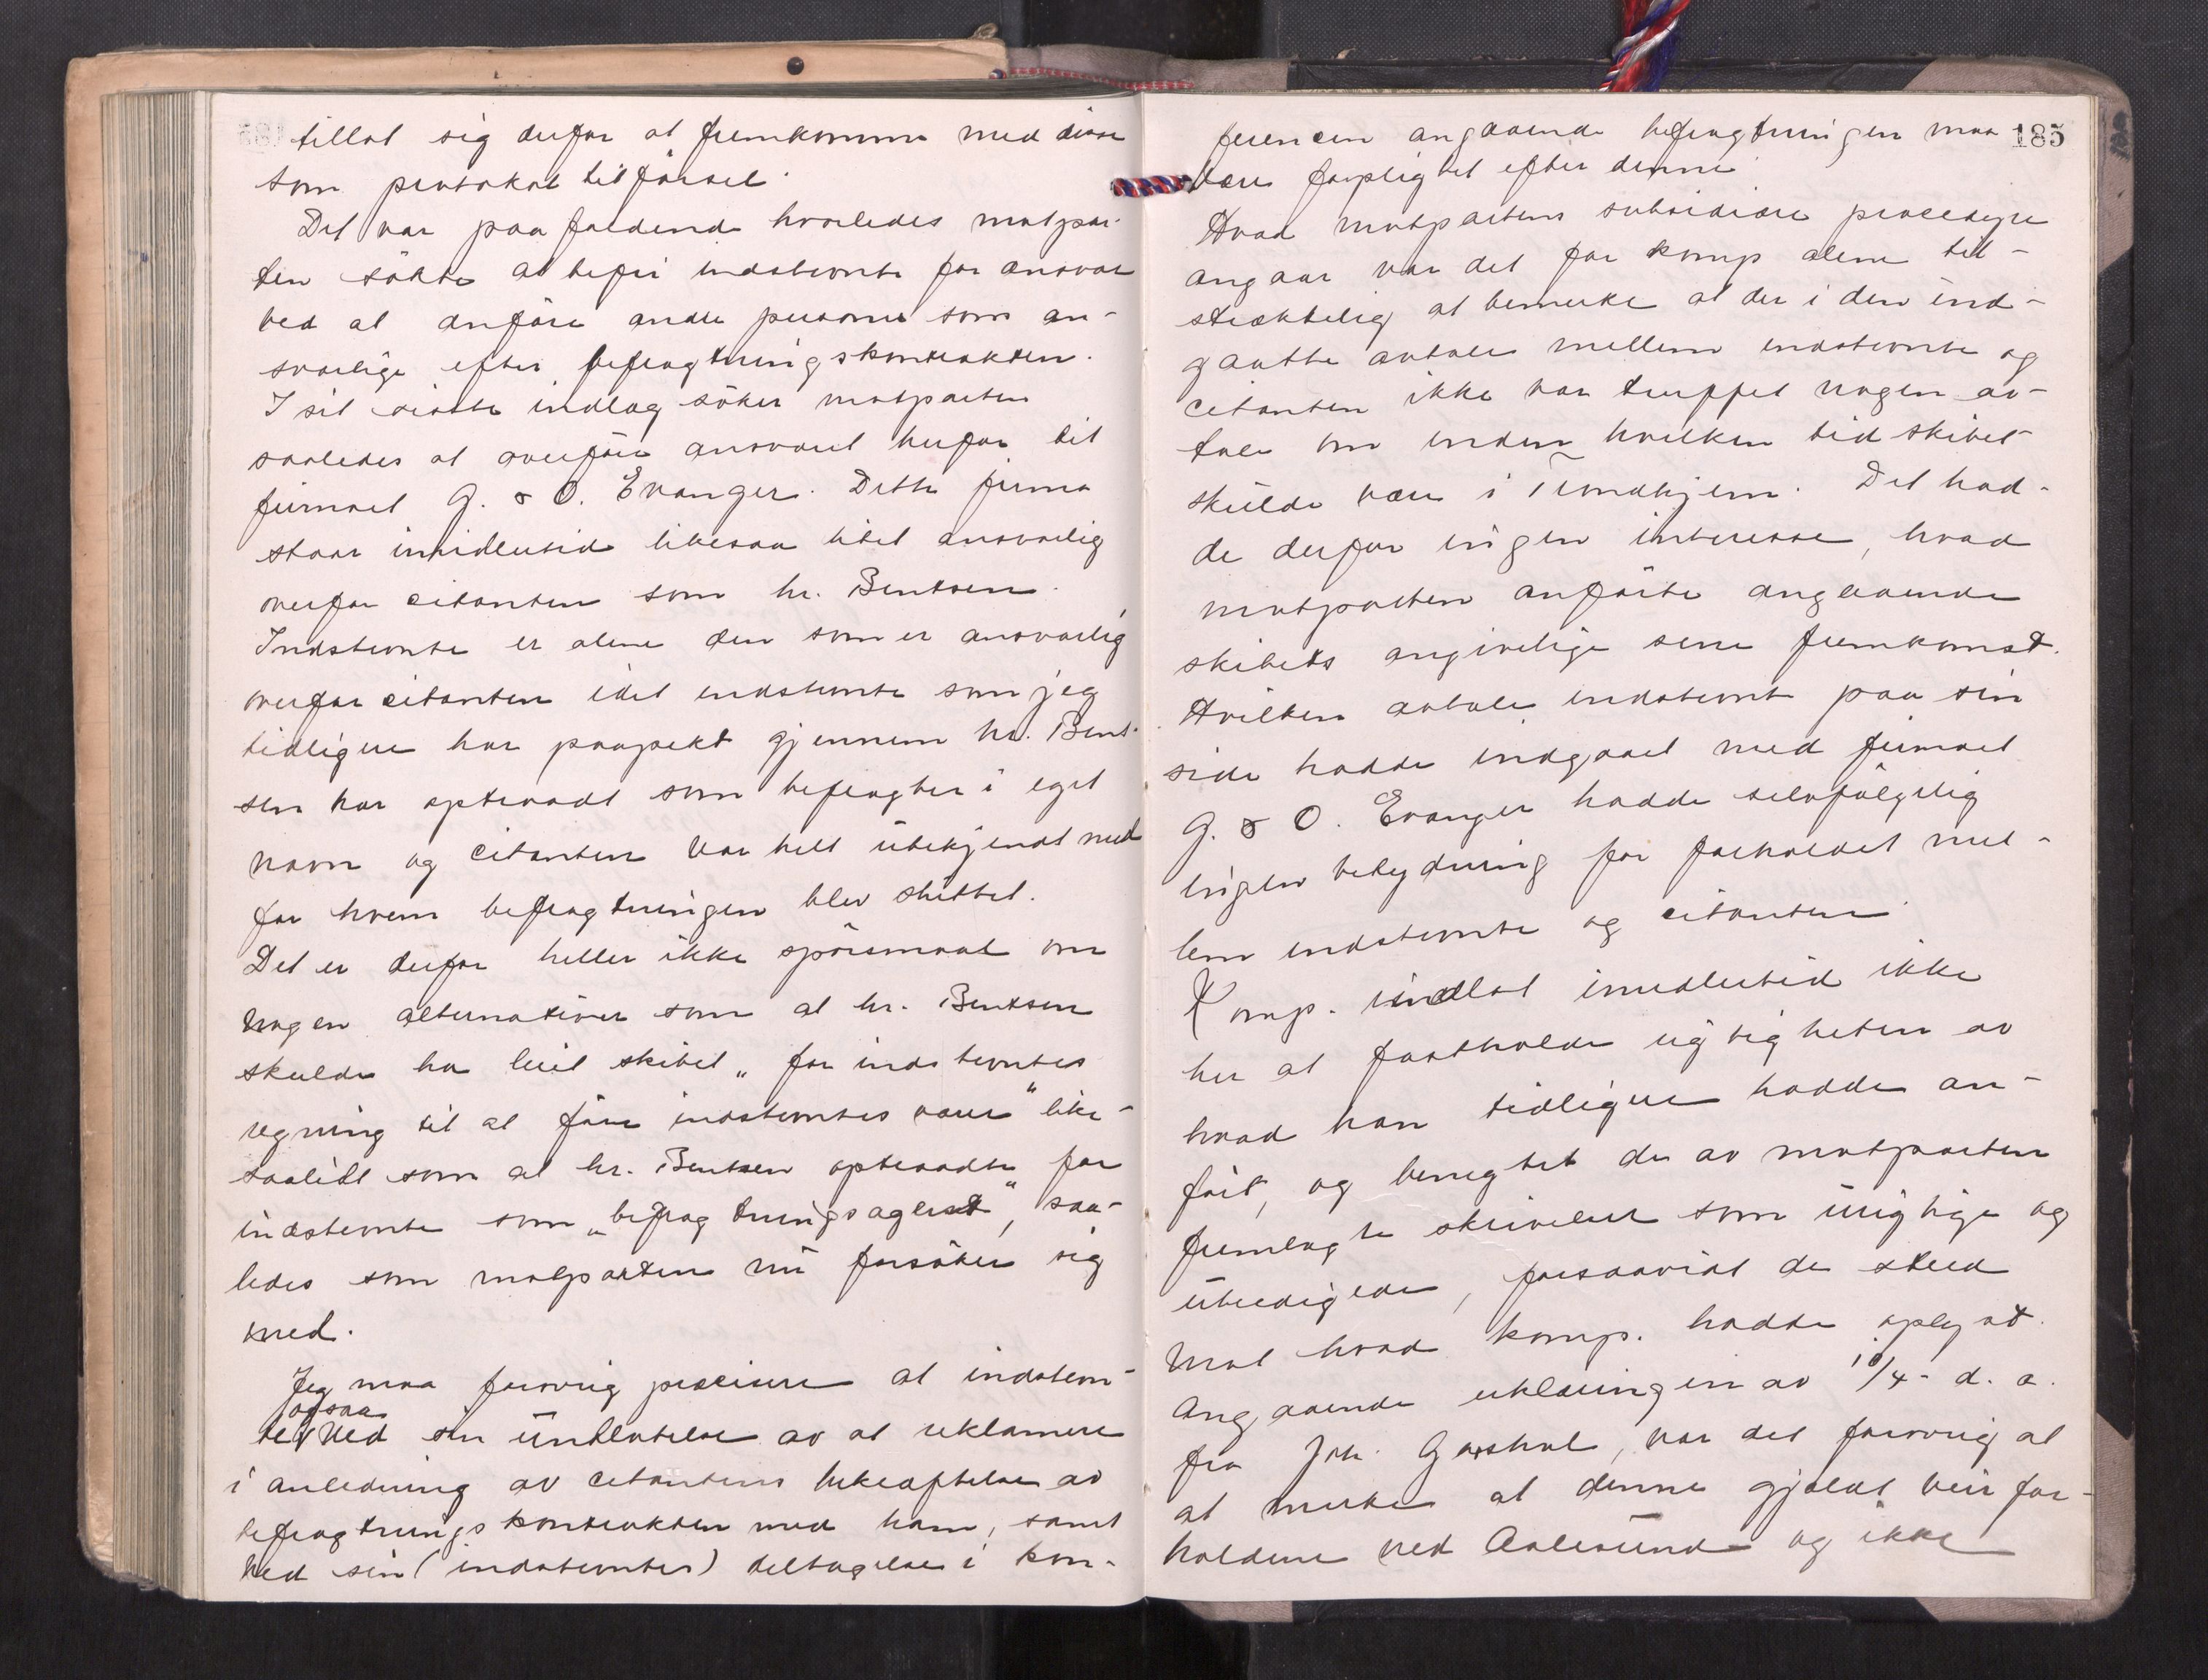 tillot sig derfor at fremkomme med disse
som protokol tilførsel.
Det var paafaldende hvorledes motpar-
ten søkte at befri indstevnte for ansvar
ved at anføre andre personer som an-
svarlige efter befragtningskontrakten.
I sit siste indlæg søker motparten
saaledes at overføre ansvaret herfor til
firmaet G. & O. Evanger. Dette firma
staar imidlertid likesaa litet ansvarlig
overfor citanten som hr. Bentsen.
Indstevnte er alene den som er ansvarlig
overfor citanten idet indstevnte som jeg
tidligere har paapekt gjennem hr. Bent-
sen har optraadt som befragter i eget
navn og citanten var helt ubekjendt med
for hvem befragtningen blev sluttet.
Det er derfor heller ikke spørsmaal om
nogen alternativer som at hr. Bentsen
skulde ha leiet skibet „for indstevntes
regning til at føre indstevntes varer" like-
saalitt som at hr. Bentsen optraadte for
indstevnte som „befragtningsagent", saa-
ledes som motparten nu forsøker sig
med.
Jeg maa forøvrig præcisere at indstevn-
te ogsaa ved sin undlatelse av at reklamere
i anledning av citantens bekræftelse av
befragtningskontrakten med ham, samt
ved sin (indstevntes) deltagelse i kon-
185
ferencen angaaende befragtningen maa
være forpligtet efter denne.
Hvad motpartens subsidiære procedyre
angaar var det for komp alene til-
strækkelig at bemerke at der i den ind-
gaatte avtale mellem indstevnte og
citanten ikke var truffet nogen av-
tale om inden hvilken tid skibet
skulde være i Trondhjem. Det had-
de derfor ingen interesse, hvad
motparten anførte angaaende
skibets angivelige sene fremkomst.
Hvilken avtale indstevnte paa sin
side hadde indgaaet med firmaet
G. & O. Evanger hadde selvfølgelig
ingen betydning for forholdet mel-
lem indstevnte og citanten.
Komp. undlot imidlertid ikke
her at fastholde rigtigheten av
hvad han tidligere hadde an-
ført, og benegtet de av motparten
fremlagte skrivelser som urigtige og
ubeedigede, forsaavidt de stred
mot hvad komp. hadde oplyst.
Angaaende erklæringen av 10/4- d. a.
fra Joh. Gaashol, var det forøvrig at
at merke at denne gjaldt veirfor-
holdene ved Aalesund og ikke